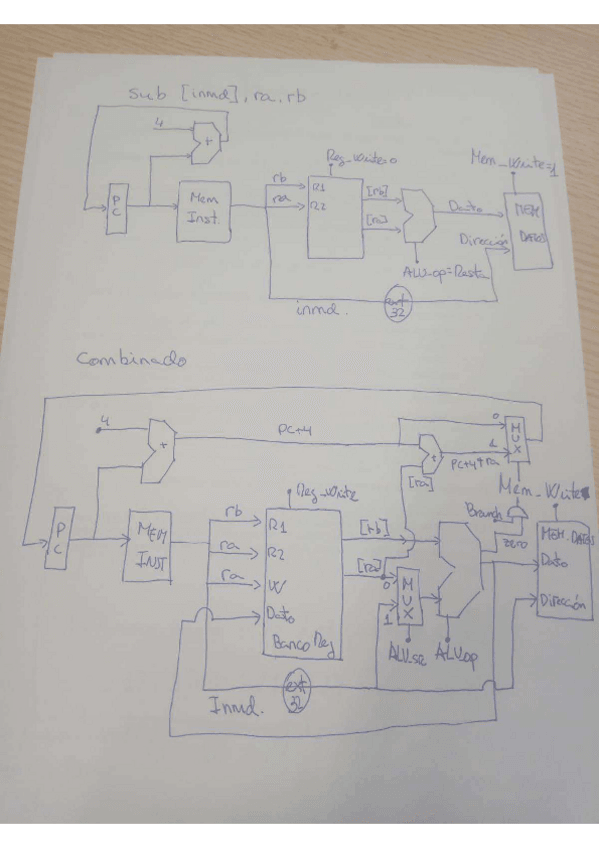 sub [inmd], ra, rb
4
+
Reg_Write=0
Mem_Write=1
rb
R1
[rb]
PC
Mem Inst.
ra
R2
[ra]
Dato
MEM DATOS
Dirección
ALU_op=Resta
inmd.
ext 32
Combinado
4
+
PC+4
0
MUX
+
1
PC+4+ra
[ra]
Reg_Write
Mem_Write
Branch
rb
R1
[rb]
PC
MEM INST
zero
MEM. DATOS
ra
R2
[ra]
0
MUX
Dato
ra
W
1
Dato
Dirección
Banco Reg
ALU_sc
ALU_op
Inmd.
ext 32